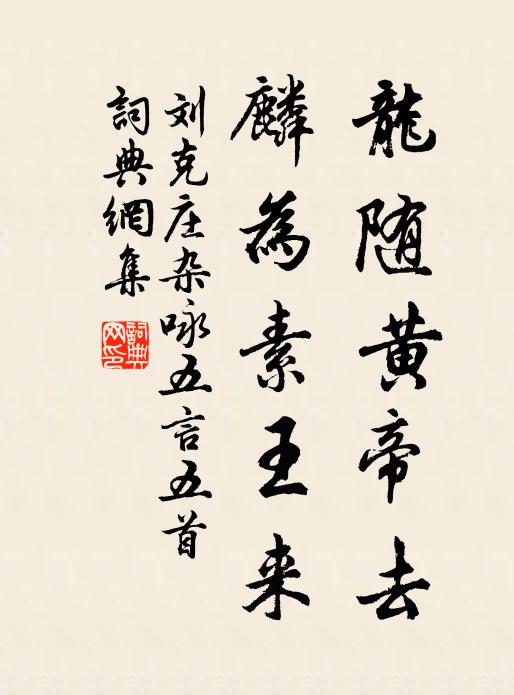 龍随黄帝去
麟為素王来
刘克庄杂咏五言五首
詞典網集
詞典网印